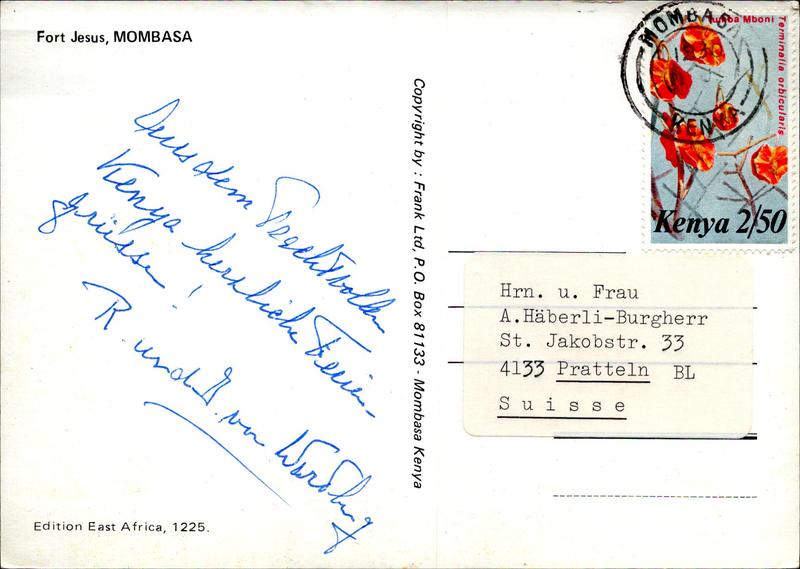 Fort Jesus, MOMBASA
Aus dem Prachtvollen
Kenya herzliche Ferien-
grüsse!
R. und
von Wartburg
Edition East Africa, 1225.
Copyright by : Frank Ltd, P.O. Box 81133 - Mombasa Kenya
MOMBASA
KENYA
Mboni
Terminalia orbicularis
Kenya 2/50
Hrn. u. Frau
A.Häberli-Burgherr
St. Jakobstr. 33
4133 Pratteln BL
Suisse